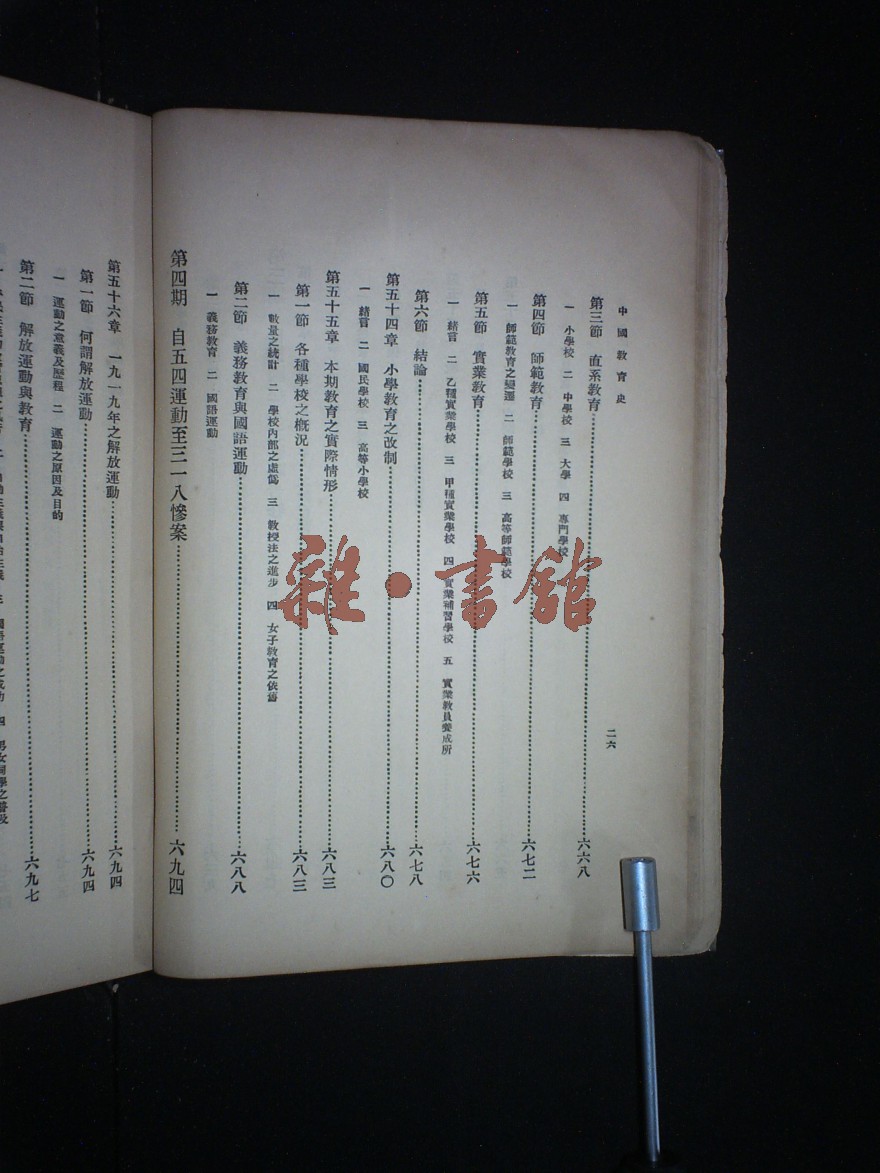 中國教育史
二六
第三節 直系教育……六六八
一 小學校 二 中學校 三 大學 四 專門學校
第四節 師範教育……六七二
一 師範教育之變遷 二 師範學校 三 高等師範學校
第五節 實業教育……六七六
一 緒言 二 乙種實業學校 三 甲種實業學校 四 實業補習學校 五 實業教員養成所
第六節 結論……六七八
第五十四章 小學教育之改制……六八〇
一 緒言 二 國民學校 三 高等小學校
第五十五章 本期教育之實際情形……六八三
第一節 各種學校之概況……六八三
一 數量之統計 二 學校內部之虛僞 三 教授法之進步 四 女子教育之依舊
第二節 義務教育與國語運動……六八八
一 義務教育 二 國語運動
第四期 自五四運動至三一八慘案……六九四
第五十六章 一九一九年之解放運動……六九四
第一節 何謂解放運動……六九四
一 運動之意義及歷程 二 運動之原因及目的
第二節 解放運動與教育……六九七
雜·書館